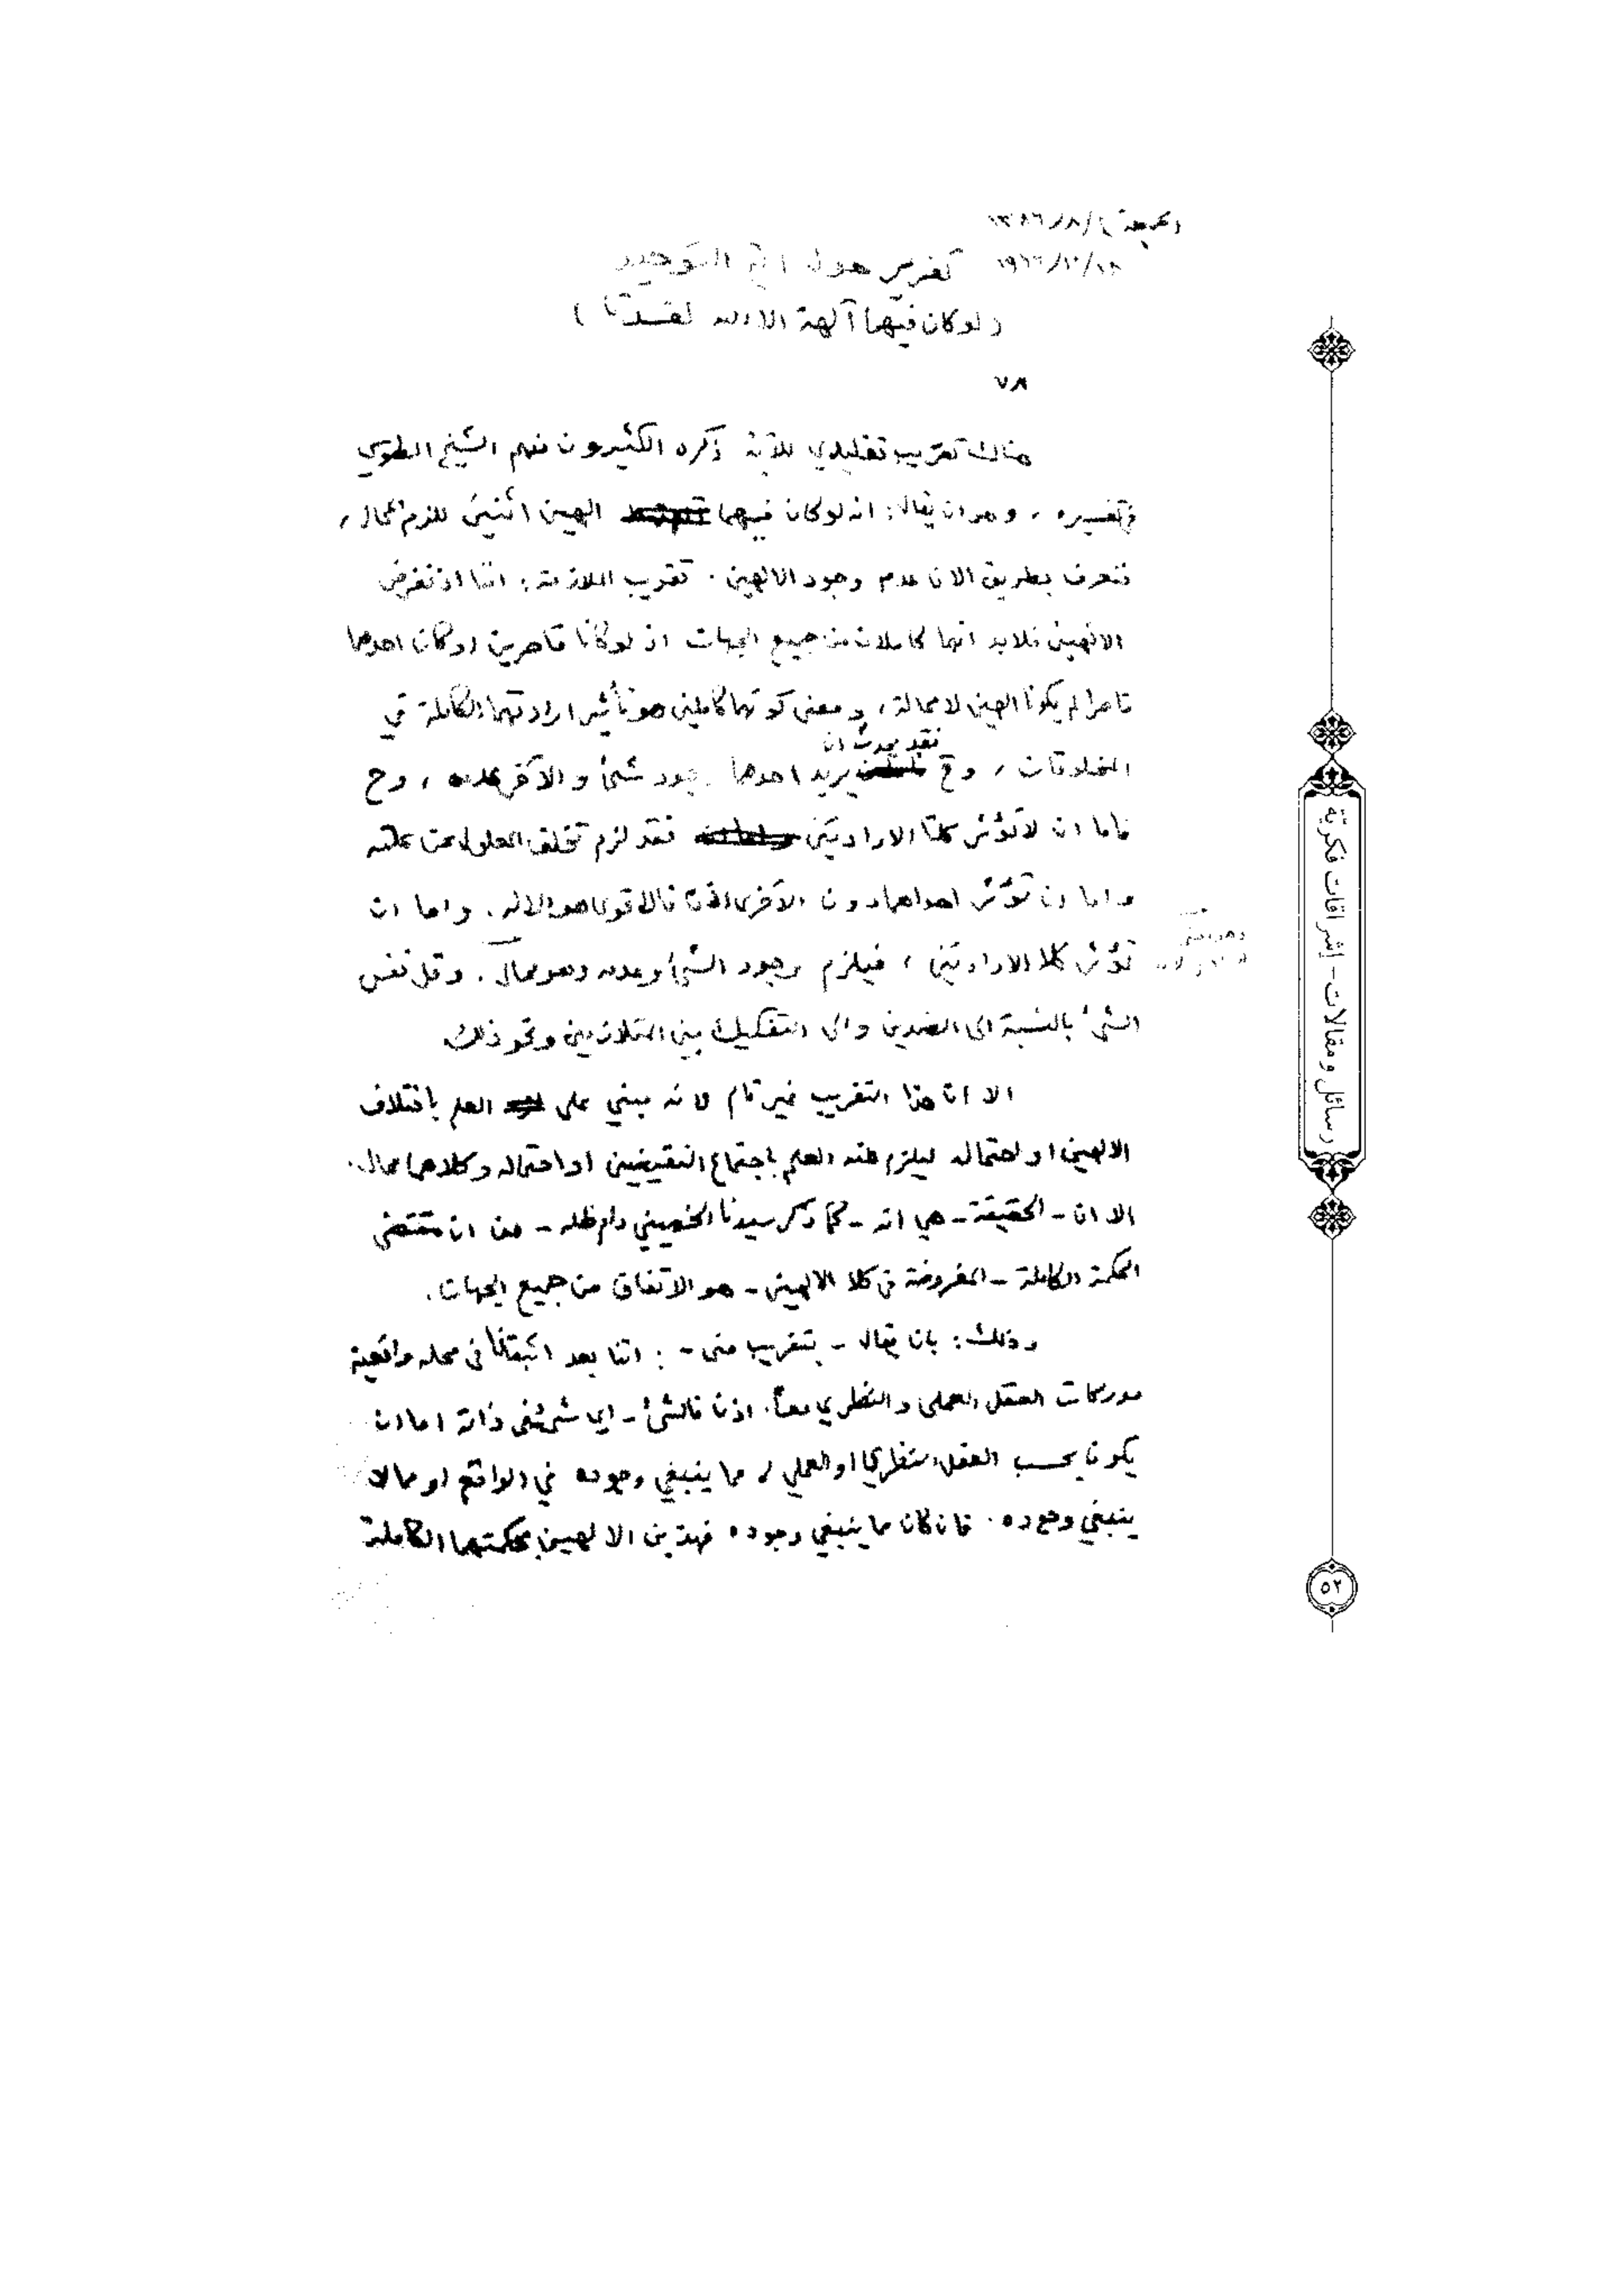 الجمعة ١٣٨٦/٨/
تقرير حول التوحيد
( لو كان فيهما آلهة الا الله لفسدتا )
٧٨
هناك تقريب تقليدي للآية ذكره الكثيرون منهم الشيخ الطوسي
في تفسيره ، وهو ان يقال : انه لو كان فيهما الهين اثنين للزم المحال ،
فنعرف بطريق الان عدم وجود الالهين . تقريب الملازمة : اننا اذ نفرض
الالهين فلابد انهما كاملان من جميع الجهات اذ لو كانا قاصرين او كان احدهما
قاصرا لم يكونا الهين لا محالة ، و معنى كونهما كاملين هو تأثير ارادتهما الكاملة في
المخلوقات ، وح فقد يحدث ان يريد احدهما وجود شئ و الآخر عدمه ، وح
فاما ان لا تؤثر كلتا الارادتين فقد لزم تخلف المعلول عن علته
و اما ان تؤثر احداهما دون الأخرى اذن فالاقوى هو الاله . و اما ان
تؤثر كلا الارادتين ، فيلزم وجود الشئ و عدمه وهو محال . وقل نفس
الشئ بالنسبة الى الضدين والى التفكيك بين المتلازمين ونحو ذلك
الا ان هذا التقريب غير تام لانه مبني على العلم باختلاف
الالهين او احتماله ليلزم منه العلم باجتماع النقيضين او احتماله وكلاهما محال .
الا ان - الحقيقة - هي انه - كما ذكر سيدنا الخميني دام ظله - من ان مقتضى
الحكمة الكاملة - المفروضة في كلا الالهين - هو الاتفاق من جميع الجهات .
وذلك : بان يقال - بتقريب منى - : اننا بعد اثباتنا في محله واقعية
مدركات العقل العملي و النظري معاً . اذن فالشئ - اي شئ في ذاته اما ان
يكون بحسب العقل النظري او العملي مما ينبغي وجوده في الواقع او مما لا
ينبغي وجوده . فان كان مما ينبغي وجوده فهذين الالهين بحكمتهما الكاملة
رسائل ومقالات - إشراقات فكريّة
٥٢